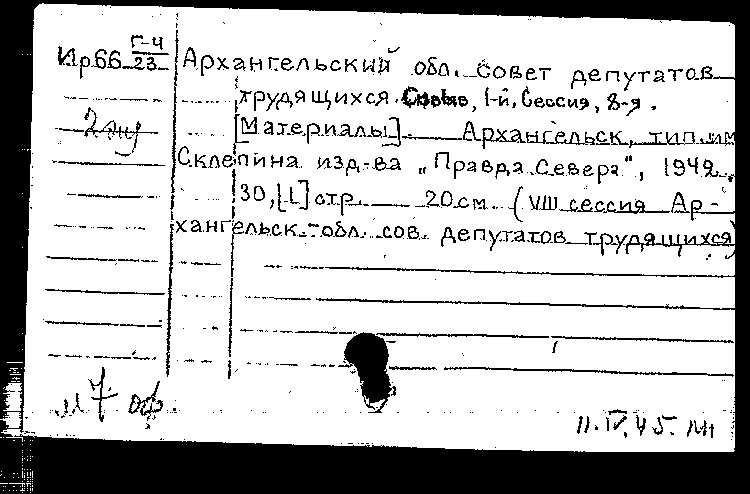 Г-4
Ир66 23 Архангельский обл. совет депутатов
трудящихся. 1-й. Сессия, 8-я.
2 экз
[Материалы]. Архангельск, тип. им
Склепина изд-ва „Правда Севера", 1942.
30, [1] стр. 20 см. (VIII сессия Ар-
хангельск. обл. сов. депутатов трудящихся)
11.IV.45.